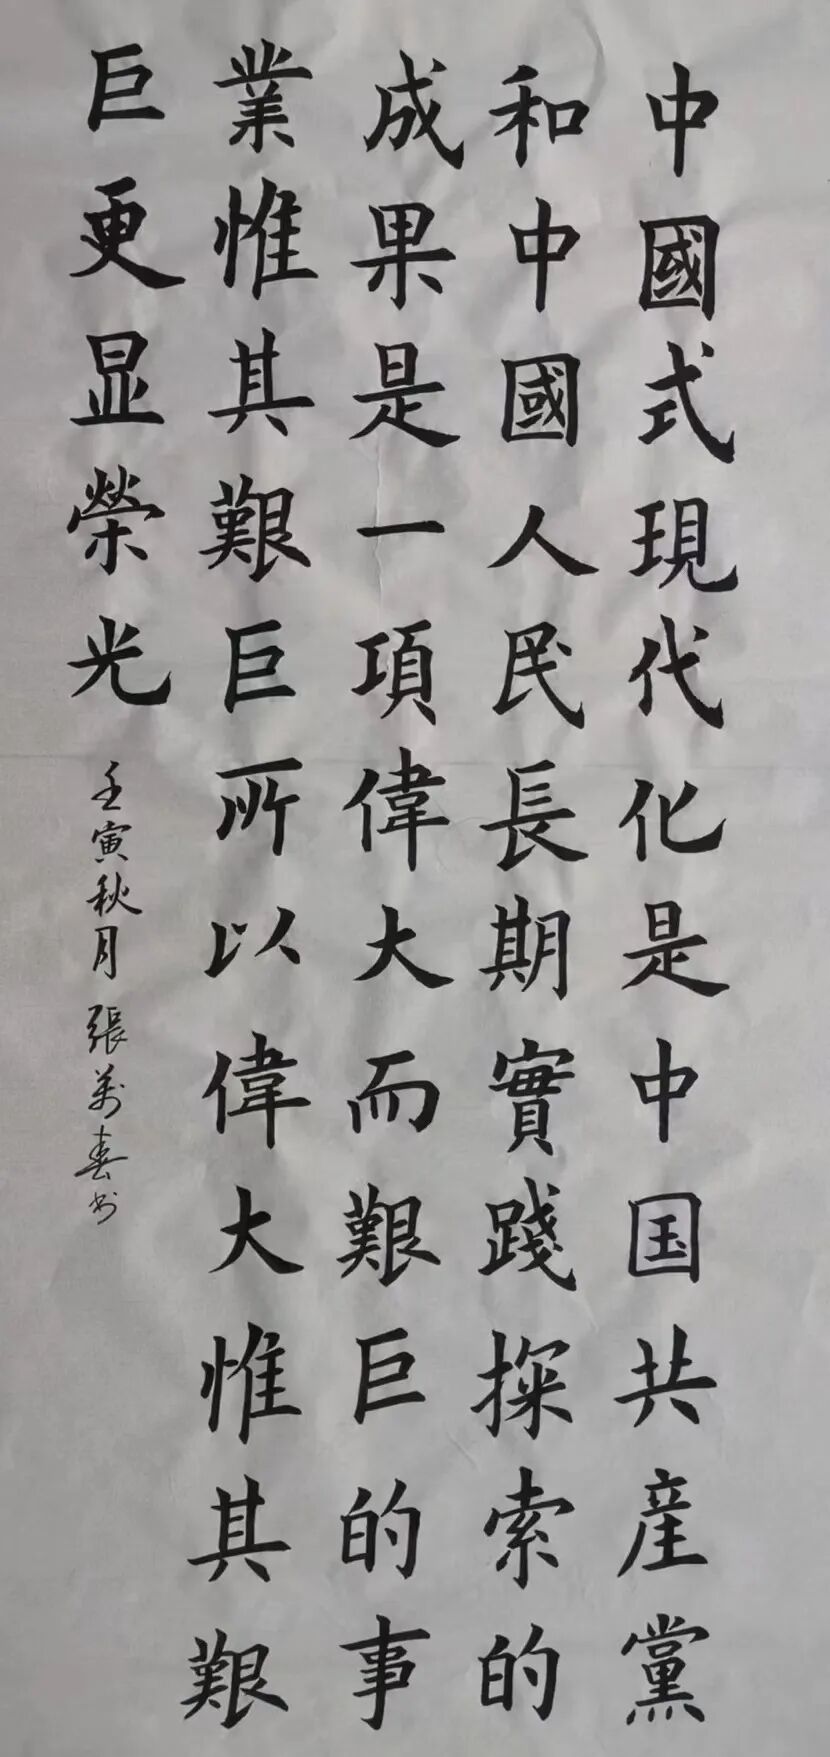 中國式現代化是中国共産黨
和中國人民長期實踐探索的
成果是一項偉大而艱巨的事
業惟其艱巨所以偉大惟其艱
巨更显榮光
壬寅秋月張萬春书